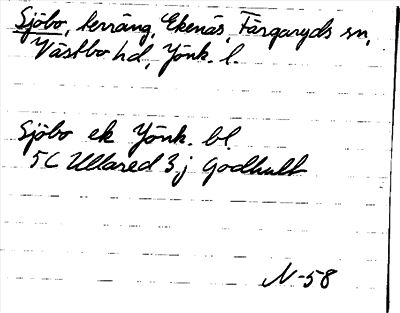 Sjöbo, terräng, Ekenäs, Färgaryds sn,
Västbo hd, Jönk. l.
Sjöbo ek Jönk. bl.
5C Ullared 3 j Godhult
N-58